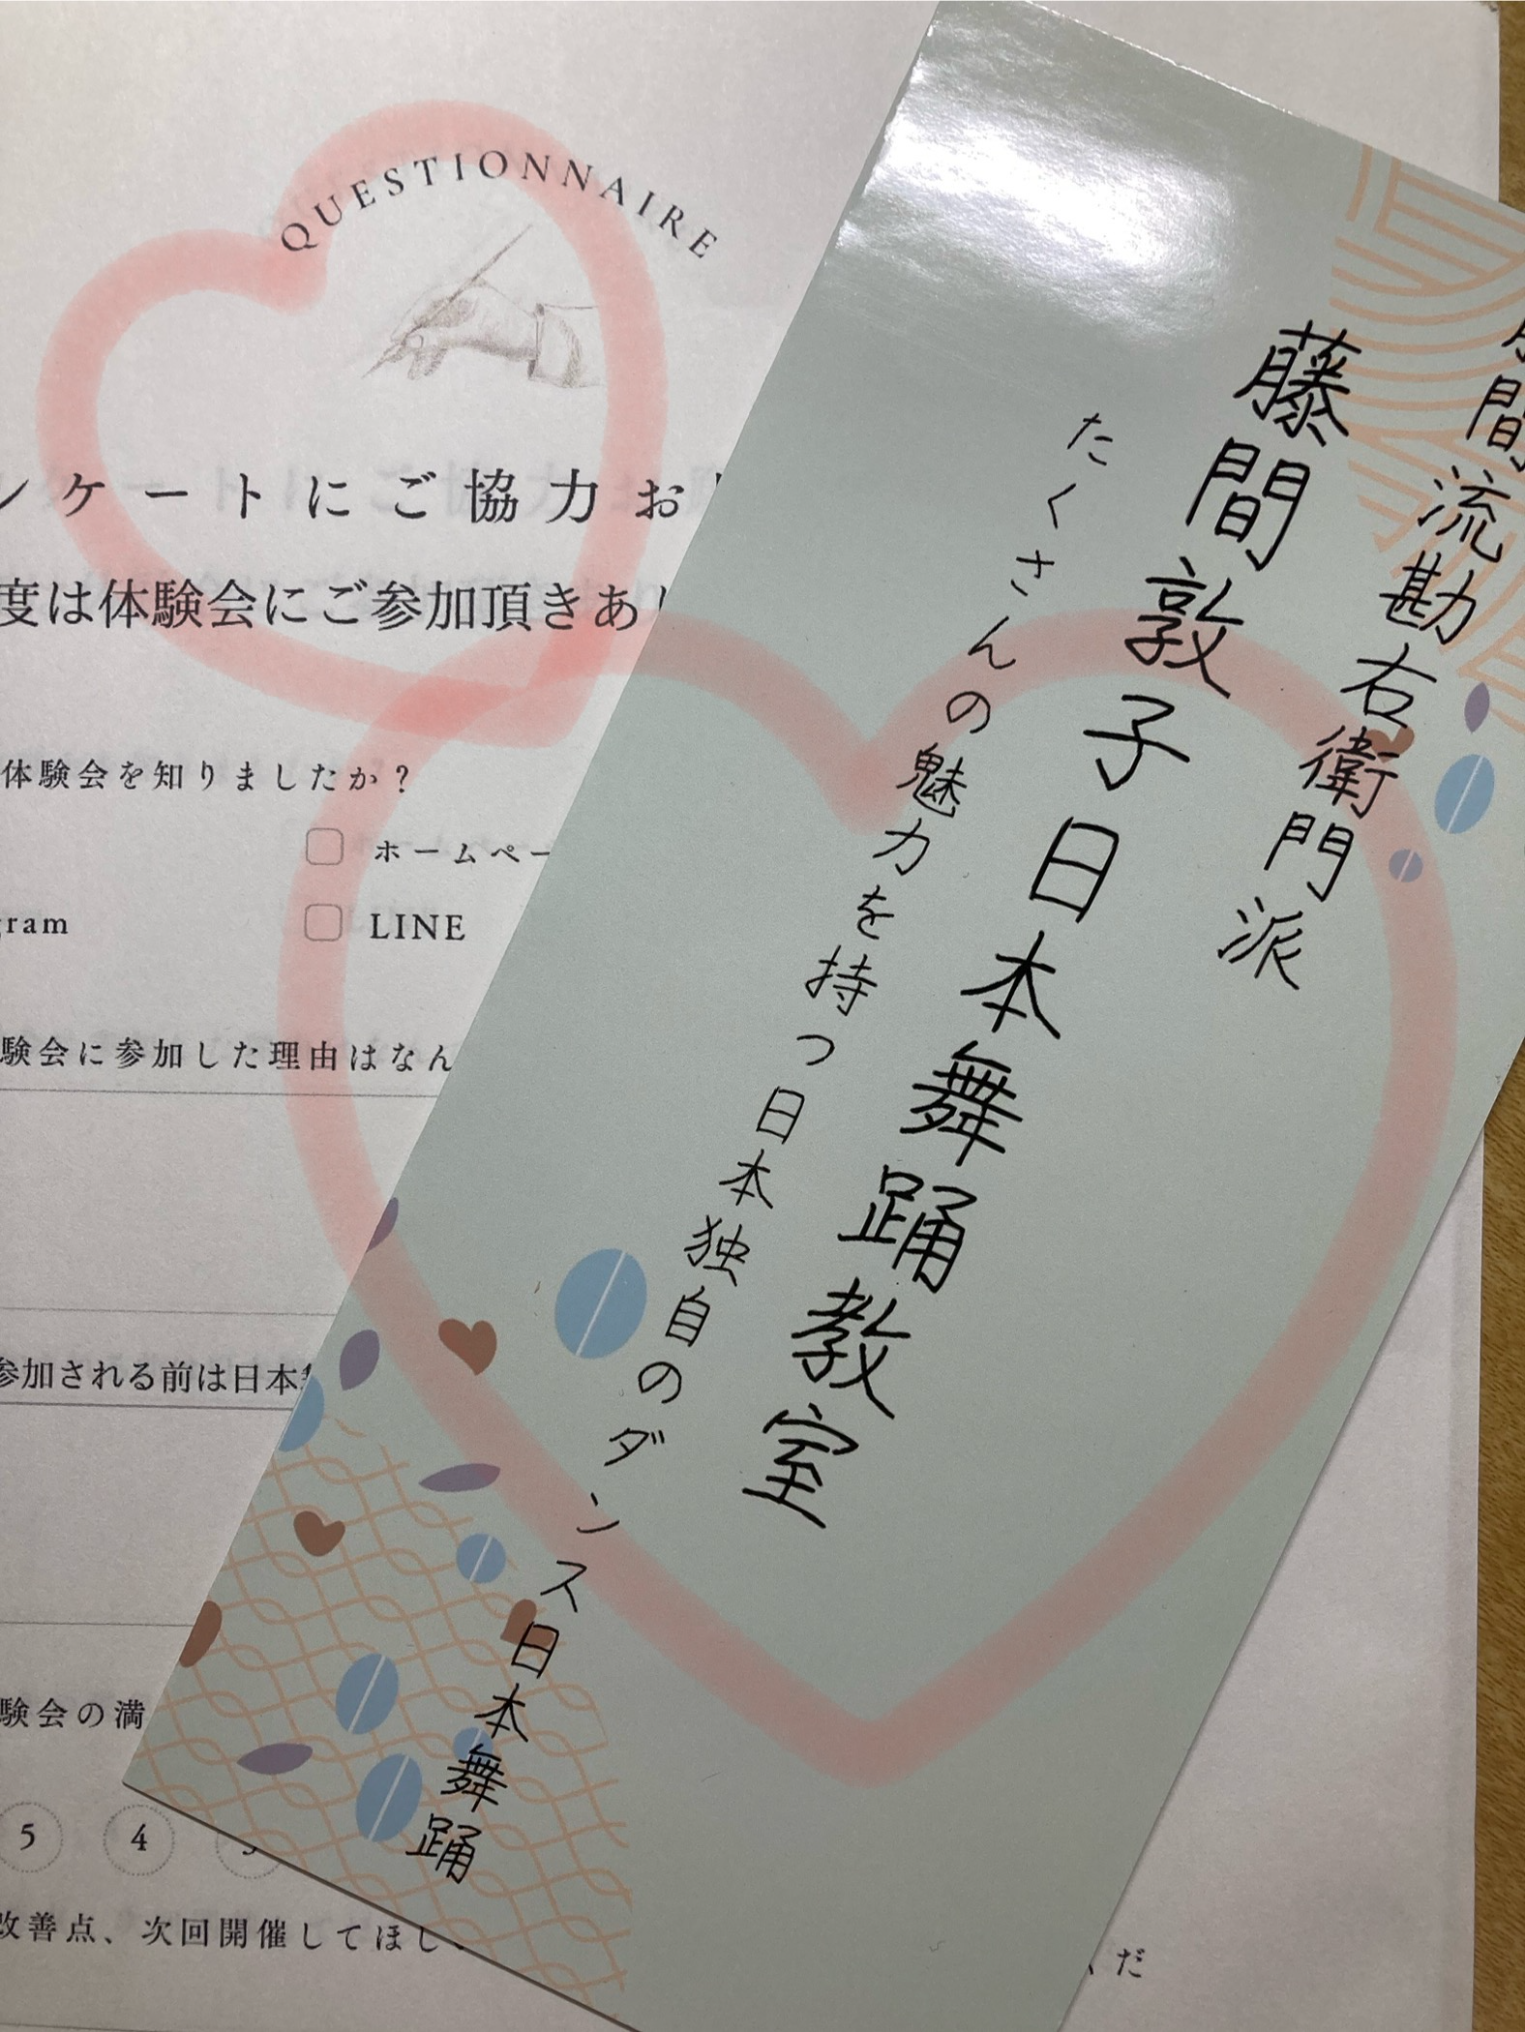 QUESTIONNAIRE
ンケートにご協力お
度は体験会にご参加頂きあ
体験会を知りましたか？
ホームペー
gram
LINE
験会に参加した理由はなん
参加される前は日本
験会の満
5
4
3
改善点、次回開催してほし
くだ
間流勘右衛門派
藤間敦子日本舞踊教室
たくさんの魅力を持つ日本独自のダンス日本舞踊